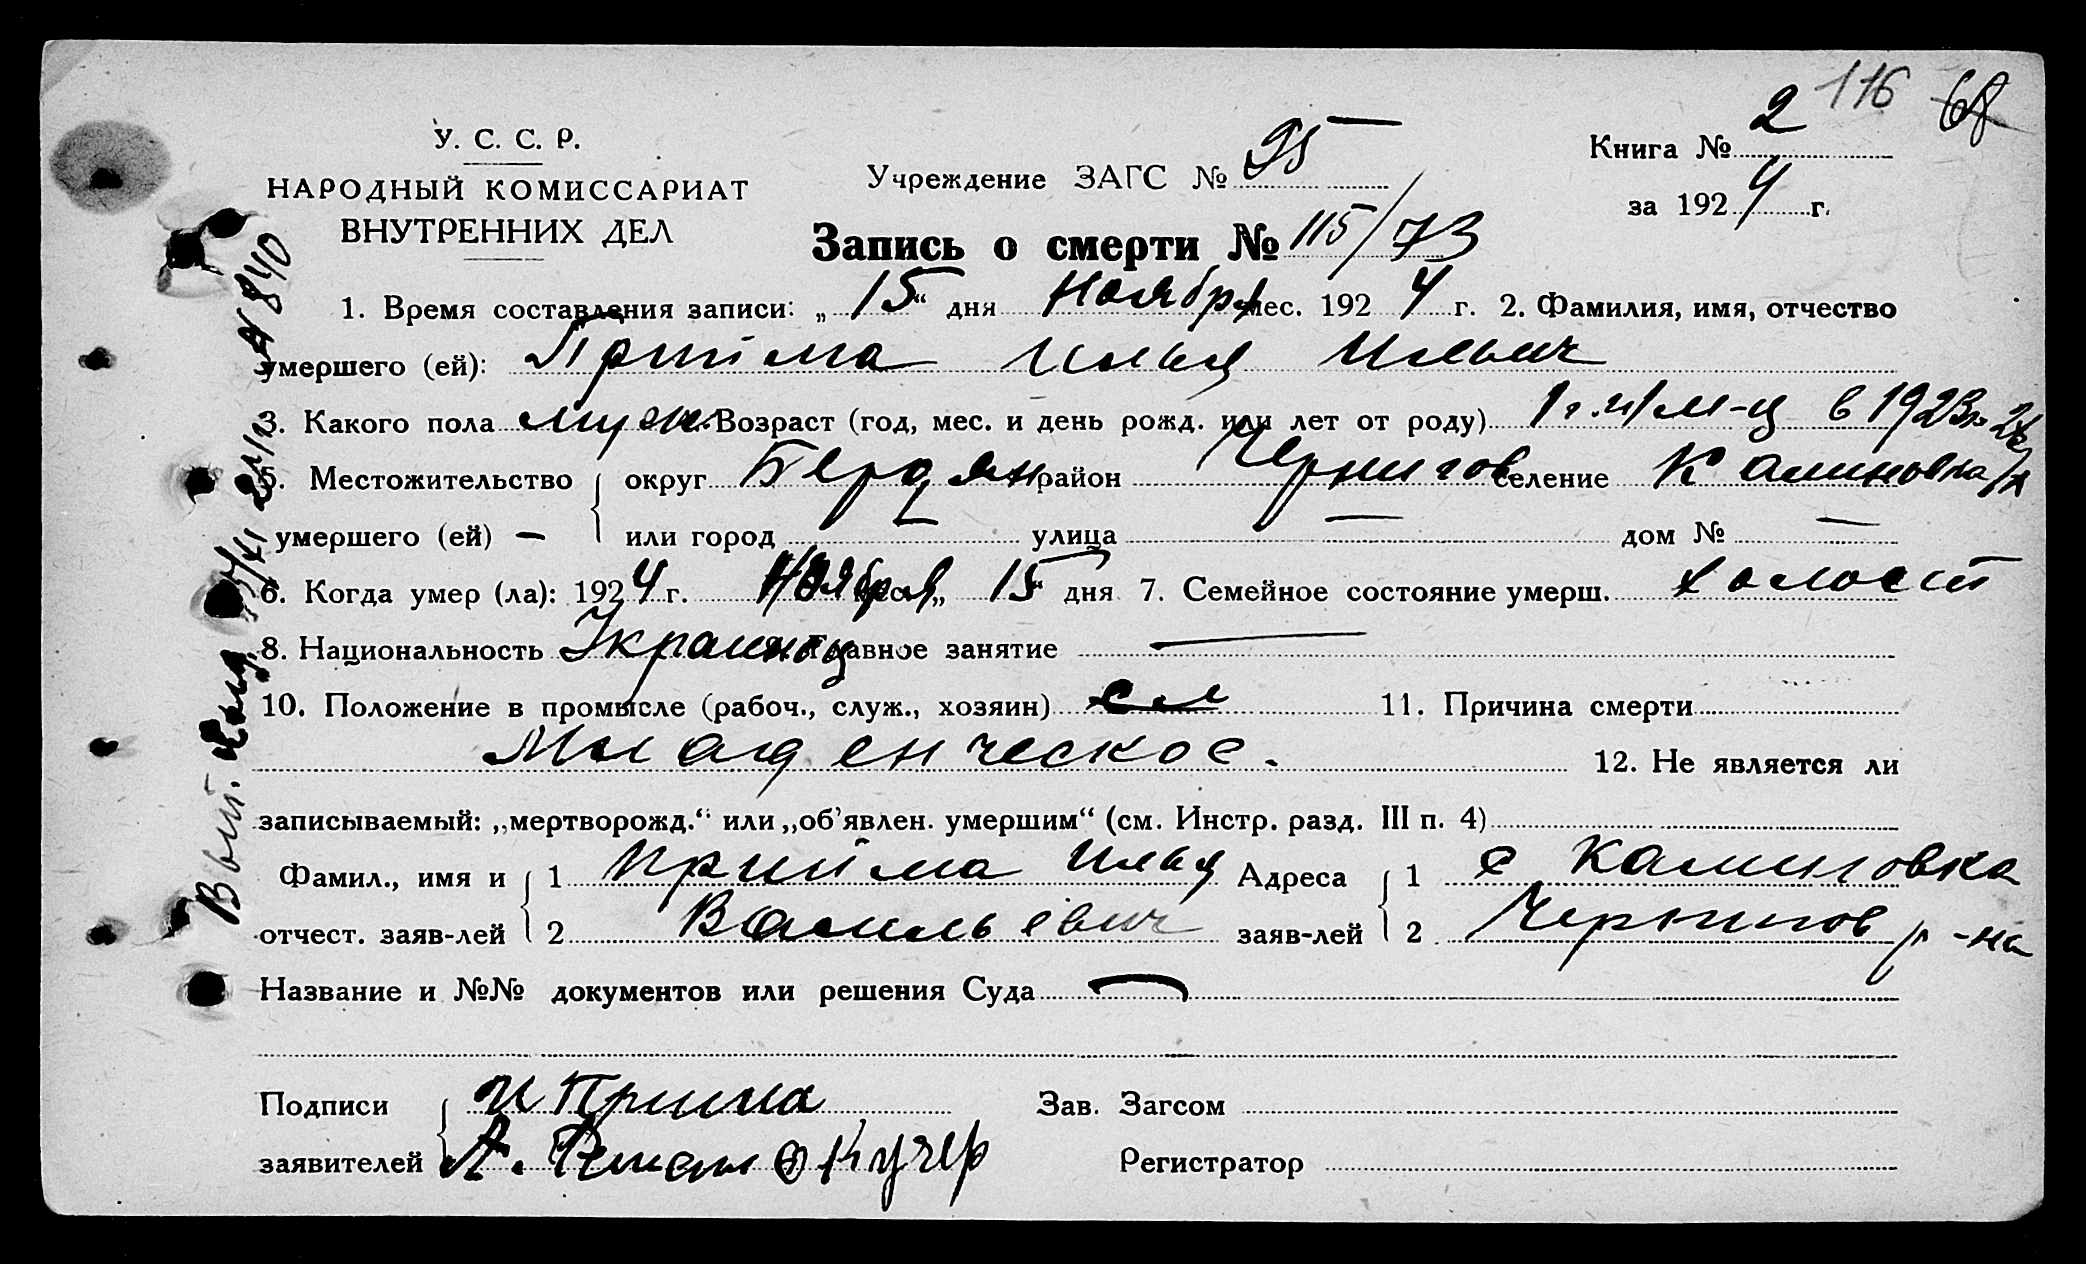 116 68
У. С. С. Р.
НАРОДНЫЙ КОМИССАРИАТ
ВНУТРЕННИХ ДЕЛ
Учреждение ЗАГС № 95
Книга № 2
за 1924 г.
Запись о смерти № 115/73
1. Время составления записи: „15“ дня Ноября мес. 1924 г. 2. Фамилия, имя, отчество
умершего (ей): Прийма Илья Ильич
3. Какого пола муж. Возраст (год, мес. и день рожд. или лет от роду) 1 г. и 1 м-ц в 1923 г.
5. Местожительство { округ Бердян район Чернигов селение Калиновка
умершего (ей) — или город — улица — дом № —
6. Когда умер (ла): 1924 г. Ноября мес. „15“ дня 7. Семейное состояние умерш. холост
8. Национальность Украинец 9. Главное занятие —
10. Положение в промысле (рабоч., служ., хозяин) 11. Причина смерти
Младенческое.
12. Не является ли
записываемый: „мертворожд.“ или „об’явлен. умершим“ (см. Инстр. разд. III п. 4)
Фамил., имя и { 1 Прийма Илья Адреса { 1 с Калиновка
отчест. заяв-лей 2 Васильевич заяв-лей 2 Чернигов р-на
Название и №№ документов или решения Суда —
Подписи { И Прийма Зав. Загсом
заявителей А. Кучер Регистратор
№ 840